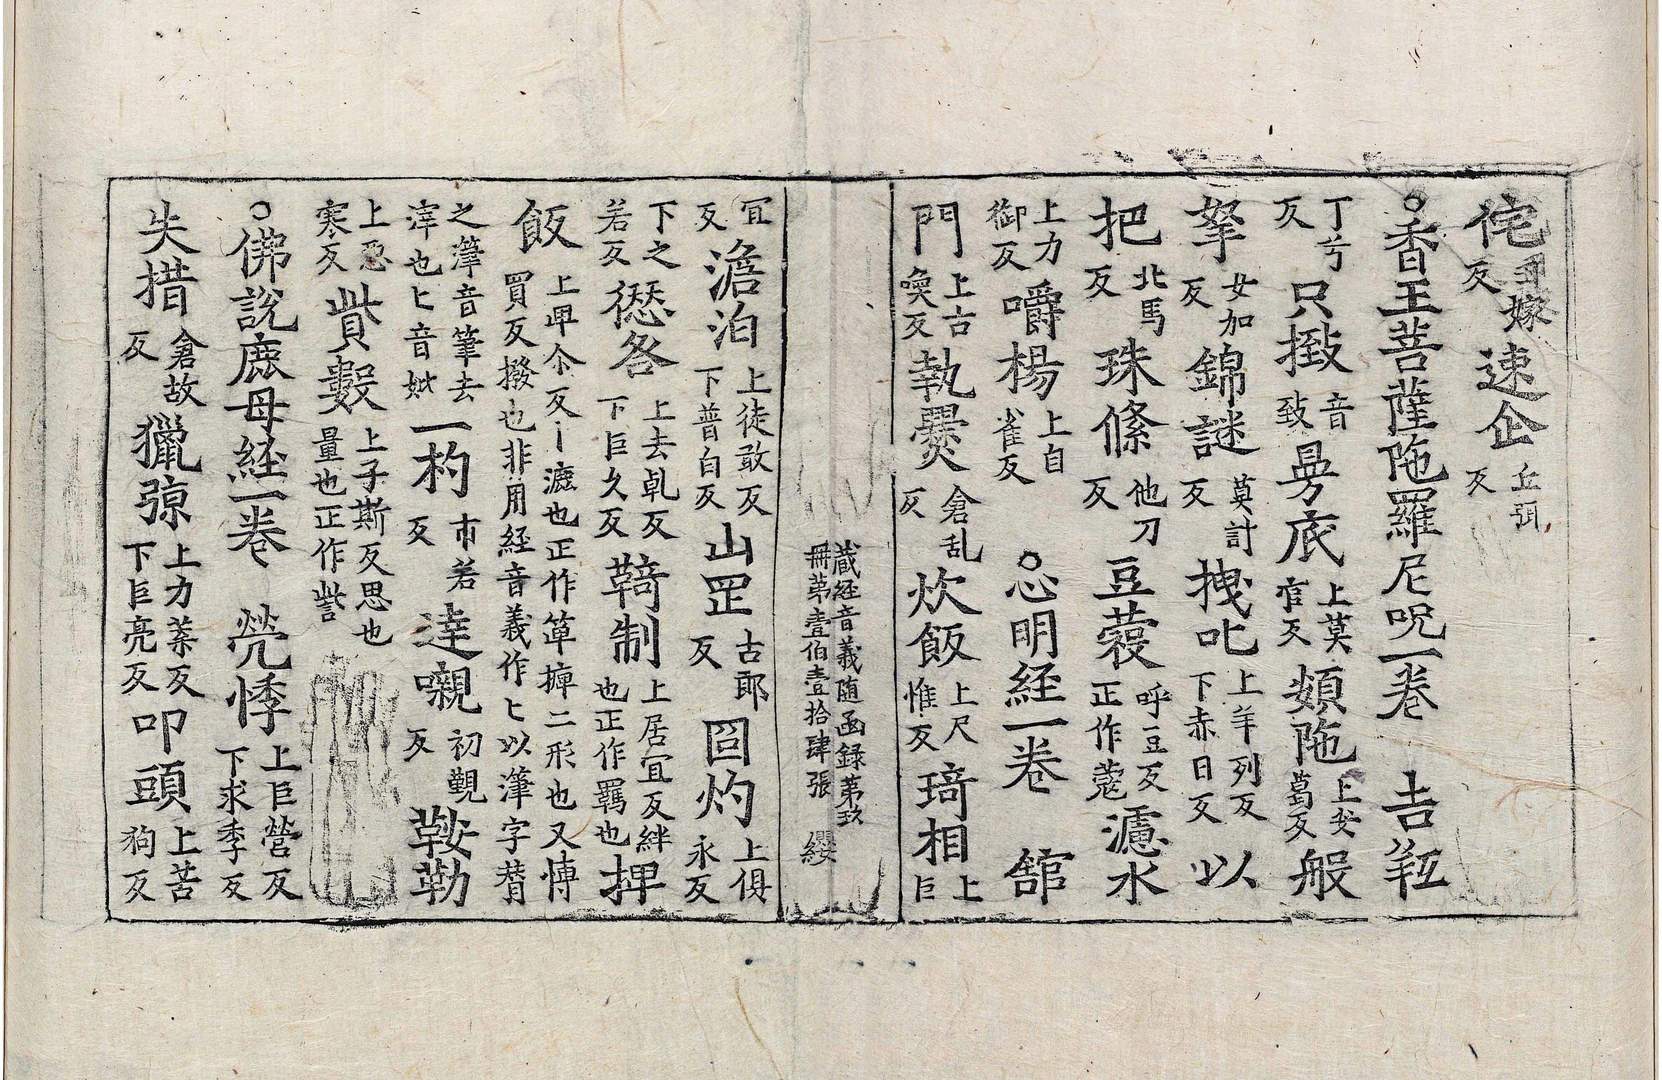 侘丑嫁反速企丘弭反
○香王菩薩陁羅尼呪一卷 吉䍩
丁兮反只撴音致㝵底上莫官反頞陁上安葛反般
拏女加反錦謎莫計反拽叱上羊列反下赤日反以
把北馬反珠絛他刀反豆蔲呼豆反正作蔻濾水
上力御反嚼楊上自雀反○心明経一卷 舘
門上古喚反執爨倉乱反炊飯上尺惟反琦相上巨
藏経音義随函録苐玖
冊苐壹伯壹拾肆張 纓
冝反澹泊上徒敢反下普白反山罡古郎反囧灼上俱永反
下之若反𠎝咎上去乹反下巨久反鞿制上居冝反絆也正作羈也捭
飯上卑尒反買反撥也丨漉也正作箄㨽二形也又慱非用経音義作匕以潷字替
之潷音筆去滓也匕音妣一杓市若反達嚫初覲反鞍勒
上恶寒反貲數上子斯反思也量也正作訾
○佛說鹿母経一卷 煢悸上巨營反下求季反
失措倉故反獵弶上力葉反下巨亮反叩頭上苦狗反